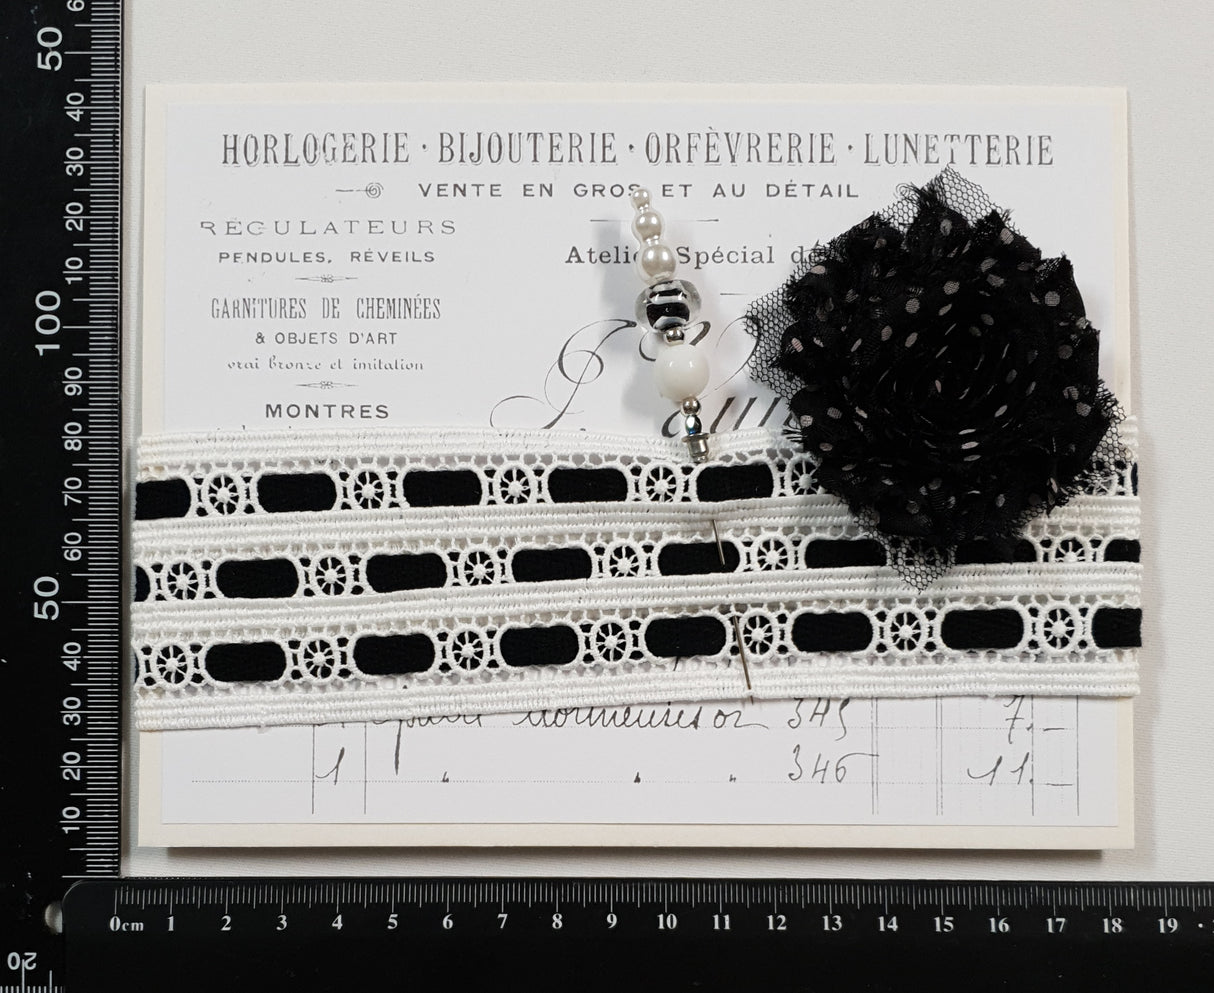 HORLOGERIE · BIJOUTERIE · ORFÈVRERIE · LUNETTERIE
VENTE EN GROS ET AU DÉTAIL
RÉGULATEURS
PENDULES, RÉVEILS
GARNITURES DE CHEMINÉES
& OBJETS D'ART
vrai bronze et imitation
MONTRES
Spécial
J.
or 345 7.—
1 " " " 346 11.—
50 40 30 20 10 100 90 80 70 60 50 40 30 20 10
0cm 1 2 3 4 5 6 7 8 9 10 11 12 13 14 15 16 17 18 19
20